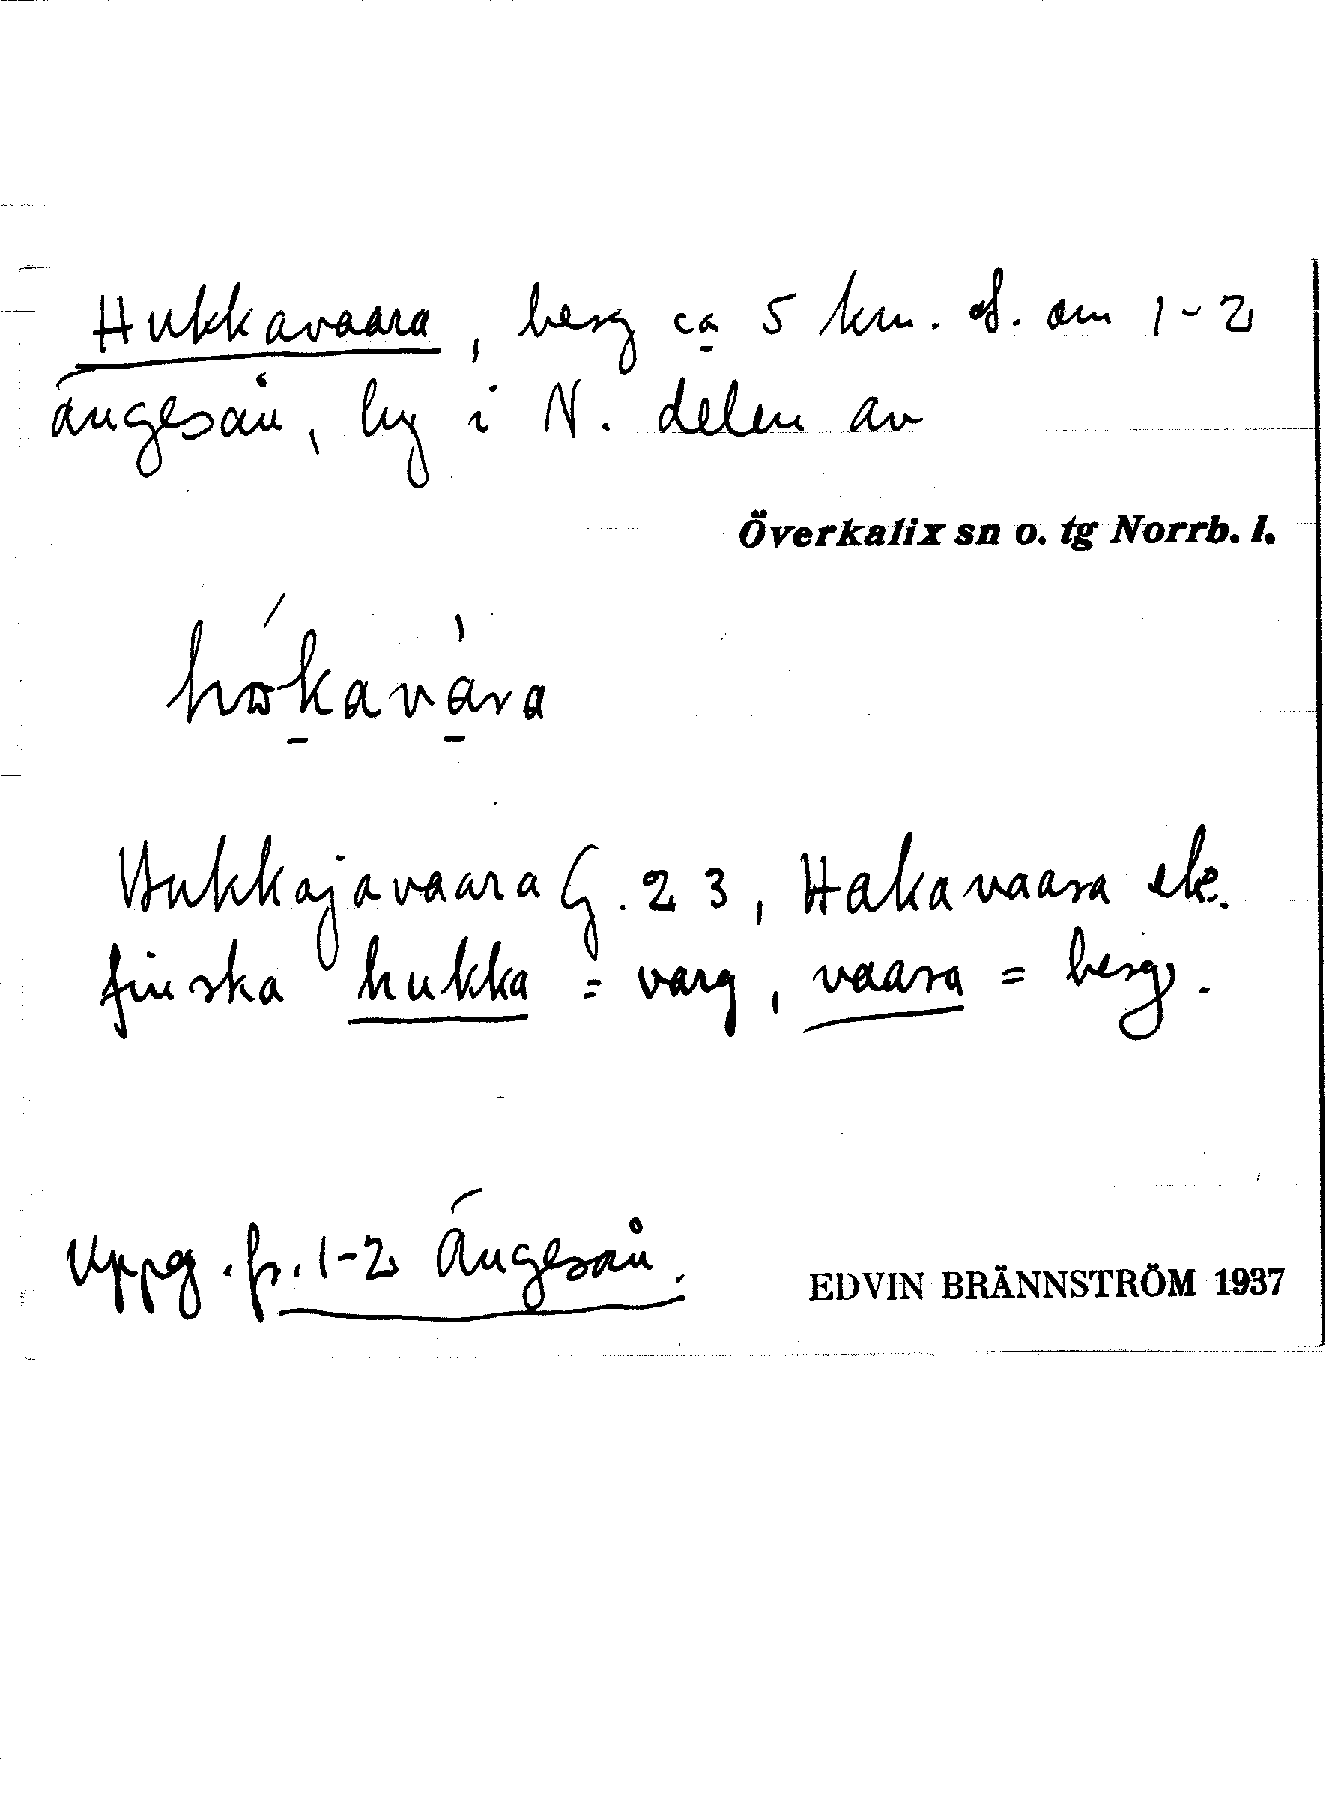 Hukkavaara, berg ca 5 km. S. om 1-2
Ängesån, by i N. delen av
Överkalix sn o. tg Norrb. l.
Hukkajavaara G. 23, Hakavaara ek.
finska hukka = varg, vaara = berg.
Uppg. fr. 1-2 Ängesån.
EDVIN BRÄNNSTRÖM 1937